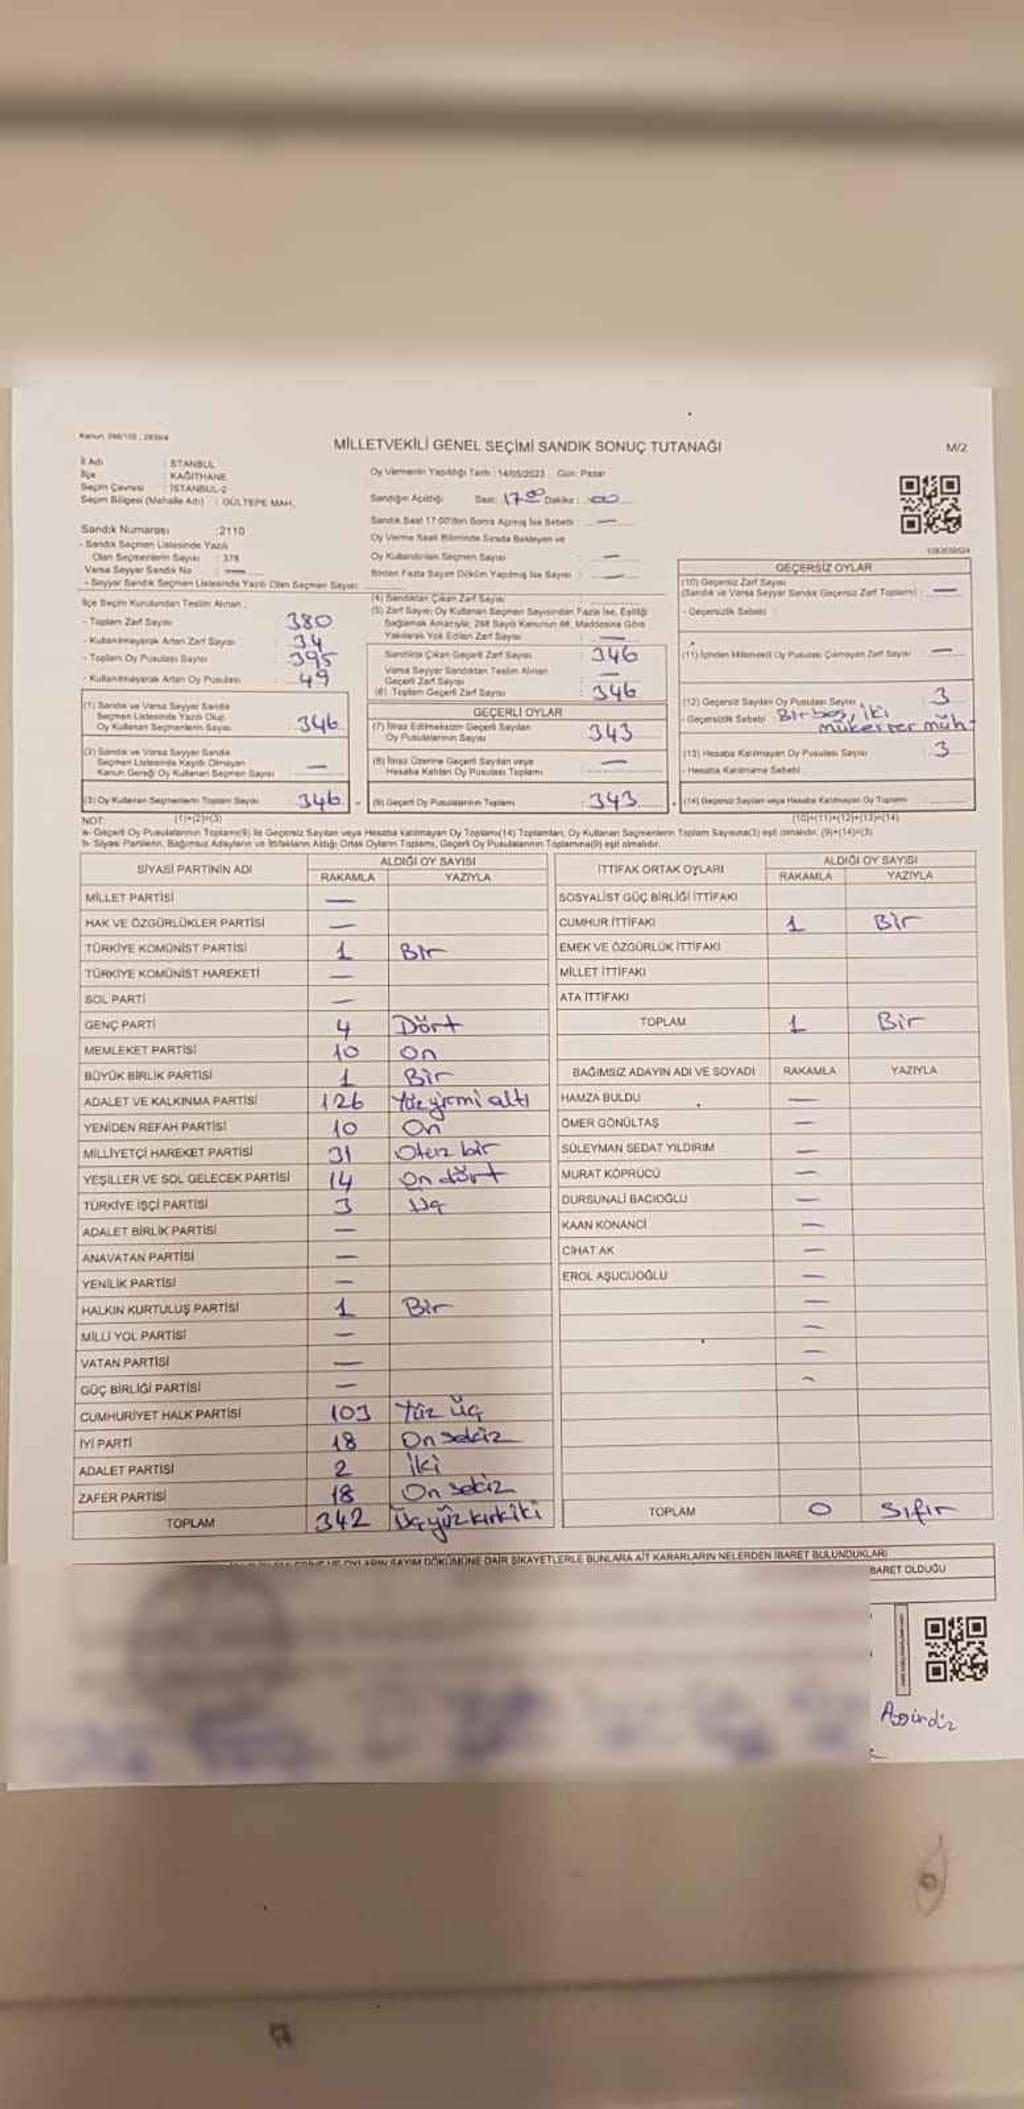 Kanun: 298/105, 2839/4
MİLLETVEKİLİ GENEL SEÇİMİ SANDIK SONUÇ TUTANAĞI
M/2
İl Adı : İSTANBUL
İlçe : KAĞITHANE
Seçim Çevresi : İSTANBUL-2
Seçim Bölgesi (Mahalle Adı) : GÜLTEPE MAH.
Sandık Numarası :2110
- Sandık Seçmen Listesinde Yazılı
Olan Seçmenlerin Sayısı : 378
Varsa Seyyar Sandık No : —
- Seyyar Sandık Seçmen Listesinde Yazılı Olan Seçmen Sayısı:
Oy Vermenin Yapıldığı Tarih : 14/05/2023 Gün: Pazar
Sandığın Açıldığı Saat: 17:00 Dakika : 00
Sandık Saat 17.00'den Sonra Açılmış İse Sebebi : —
Oy Verme Saati Bitiminde Sırada Bekleyen ve
Oy Kullandırılan Seçmen Sayısı : —
Birden Fazla Sayım Döküm Yapılmış İse Sayısı : —
İlçe Seçim Kurulundan Teslim Alınan :
- Toplam Zarf Sayısı : 380
- Kullanılmayarak Artan Zarf Sayısı : 34
- Toplam Oy Pusulası Sayısı : 395
- Kullanılmayarak Artan Oy Pusulası : 49
(1) Sandık ve Varsa Seyyar Sandık
Seçmen Listesinde Yazılı Olup
Oy Kullanan Seçmenlerin Sayısı : 346
(2) Sandık ve Varsa Seyyar Sandık
Seçmen Listesinde Kayıtlı Olmayan
Kanun Gereği Oy Kullanan Seçmen Sayısı : —
(3) Oy Kullanan Seçmenlerin Toplam Sayısı : 346
(4) Sandıktan Çıkan Zarf Sayısı
(5) Zarf Sayısı Oy Kullanan Seçmen Sayısından Fazla İse, Eşitliği
Sağlamak Amacıyla, 298 Sayılı Kanunun 98. Maddesine Göre
Yakılarak Yok Edilen Zarf Sayısı : —
Sandıkta Çıkan Geçerli Zarf Sayısı : 346
Varsa Seyyar Sandıktan Teslim Alınan
Geçerli Zarf Sayısı : —
(6) Toplam Geçerli Zarf Sayısı : 346
GEÇERLİ OYLAR
(7) İtiraz Edilmeksizin Geçerli Sayılan
Oy Pusulalarının Sayısı : 343
(8) İtiraz Üzerine Geçerli Sayılan veya
Hesaba Katılan Oy Pusulası Toplamı : —
(9) Geçerli Oy Pusulalarının Toplamı : 343
GEÇERSİZ OYLAR
(10) Geçersiz Zarf Sayısı
(Sandık ve Varsa Seyyar Sandık Geçersiz Zarf Toplamı) : —
- Geçersizlik Sebebi :
(11) İçinden Milletvekili Oy Pusulası Çıkmayan Zarf Sayısı : —
(12) Geçersiz Sayılan Oy Pusulası Sayısı : 3
- Geçersizlik Sebebi Bir boş, iki
mükerrer müh.
(13) Hesaba Katılmayan Oy Pusulası Sayısı : 3
- Hesaba Katılmama Sebebi
(14) Geçersiz Sayılan veya Hesaba Katılmayan Oy Toplamı
NOT: (1)+(2)=(3)
(10)+(11)+(12)+(13)=(14)
a- Geçerli Oy Pusulalarının Toplamı(9) ile Geçersiz Sayılan veya Hesaba katılmayan Oy Toplamı(14) Toplamları, Oy Kullanan Seçmenlerin Toplam Sayısına(3) eşit olmalıdır. (9)+(14)=(3)
b- Siyasi Partilerin, Bağımsız Adayların ve İttifakların Aldığı Ortak Oyların Toplamı, Geçerli Oy Pusulalarının Toplamına(9) eşit olmalıdır.
SİYASİ PARTİNİN ADI ALDIĞI OY SAYISI
RAKAMLA YAZIYLA
MİLLET PARTİSİ —
HAK VE ÖZGÜRLÜKLER PARTİSİ —
TÜRKİYE KOMÜNİST PARTİSİ 1 Bir
TÜRKİYE KOMÜNİST HAREKETİ —
SOL PARTİ —
GENÇ PARTİ 4 Dört
MEMLEKET PARTİSİ 10 On
BÜYÜK BİRLİK PARTİSİ 1 Bir
ADALET VE KALKINMA PARTİSİ 126 Yüzyirmi altı
YENİDEN REFAH PARTİSİ 10 On
MİLLİYETÇİ HAREKET PARTİSİ 31 Otuz bir
YEŞİLLER VE SOL GELECEK PARTİSİ 14 On dört
TÜRKİYE İŞÇİ PARTİSİ 3 Üç
ADALET BİRLİK PARTİSİ —
ANAVATAN PARTİSİ —
YENİLİK PARTİSİ —
HALKIN KURTULUŞ PARTİSİ 1 Bir
MİLLİ YOL PARTİSİ —
VATAN PARTİSİ —
GÜÇ BİRLİĞİ PARTİSİ —
CUMHURİYET HALK PARTİSİ 103 Yüz üç
İYİ PARTİ 18 On sekiz
ADALET PARTİSİ 2 İki
ZAFER PARTİSİ 18 On sekiz
TOPLAM 342 Üçyüzkırkiki
İTTİFAK ORTAK OYLARI ALDIĞI OY SAYISI
RAKAMLA YAZIYLA
SOSYALİST GÜÇ BİRLİĞİ İTTİFAKI
CUMHUR İTTİFAKI 1 Bir
EMEK VE ÖZGÜRLÜK İTTİFAKI
MİLLET İTTİFAKI
ATA İTTİFAKI
TOPLAM 1 Bir
BAĞIMSIZ ADAYIN ADI VE SOYADI RAKAMLA YAZIYLA
HAMZA BULDU —
ÖMER GÖNÜLTAŞ —
SÜLEYMAN SEDAT YILDIRIM —
MURAT KÖPRÜCÜ —
DURSUNALİ BACIOĞLU —
KAAN KONANCI —
CİHAT AK —
EROL AŞUCUOĞLU —
—
—
—
—
TOPLAM 0 Sıfır
OYLARIN SAYIM DÖKÜMÜNE DAİR ŞİKAYETLERLE BUNLARA AİT KARARLARIN NELERDEN İBARET BULUNDUKLARI
BARET OLDUĞU